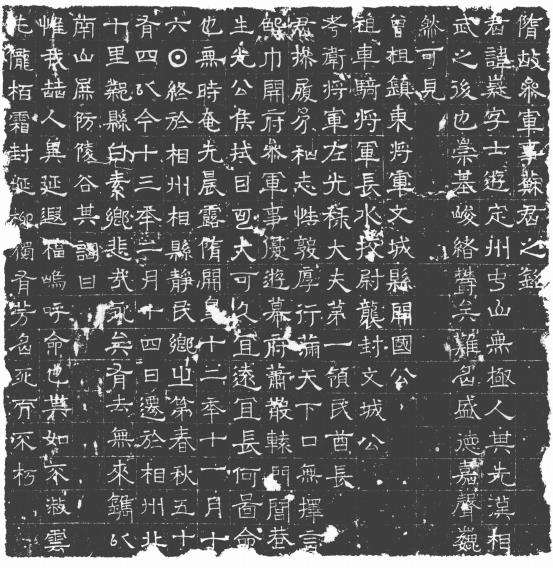 隋故叅軍事蘇君之銘
君諱嶷字士遊定州中山無極人其先漢相
武之後也崇基峻緒欝矣難名盛德嘉聲巍
然可見
曾祖鎮東將軍文城縣開國公
祖車騎將軍長水校尉襲封文城公
考衛將軍左光祿大夫第一領民酋長
君操履芬和志性敦厚行滿天下口無擇言
解巾開府叅軍事優遊幕府蕭散轅門
生先公儁拭目可大可久且遠宜長何啚命
也無時奄先晨露隋開皇十二年十一月十
六日終於相州相縣靜民鄉之第春秋五十
有四以今十三年二月十四日遷於相州北
十里縣白素鄉悲哉永矣有去無來鐫以
南山庶防陵谷其詞曰
惟我喆人具延遐福嗚呼命也其如不淑雲
低隴栢霜封埏柳獨有芳名死而不朽